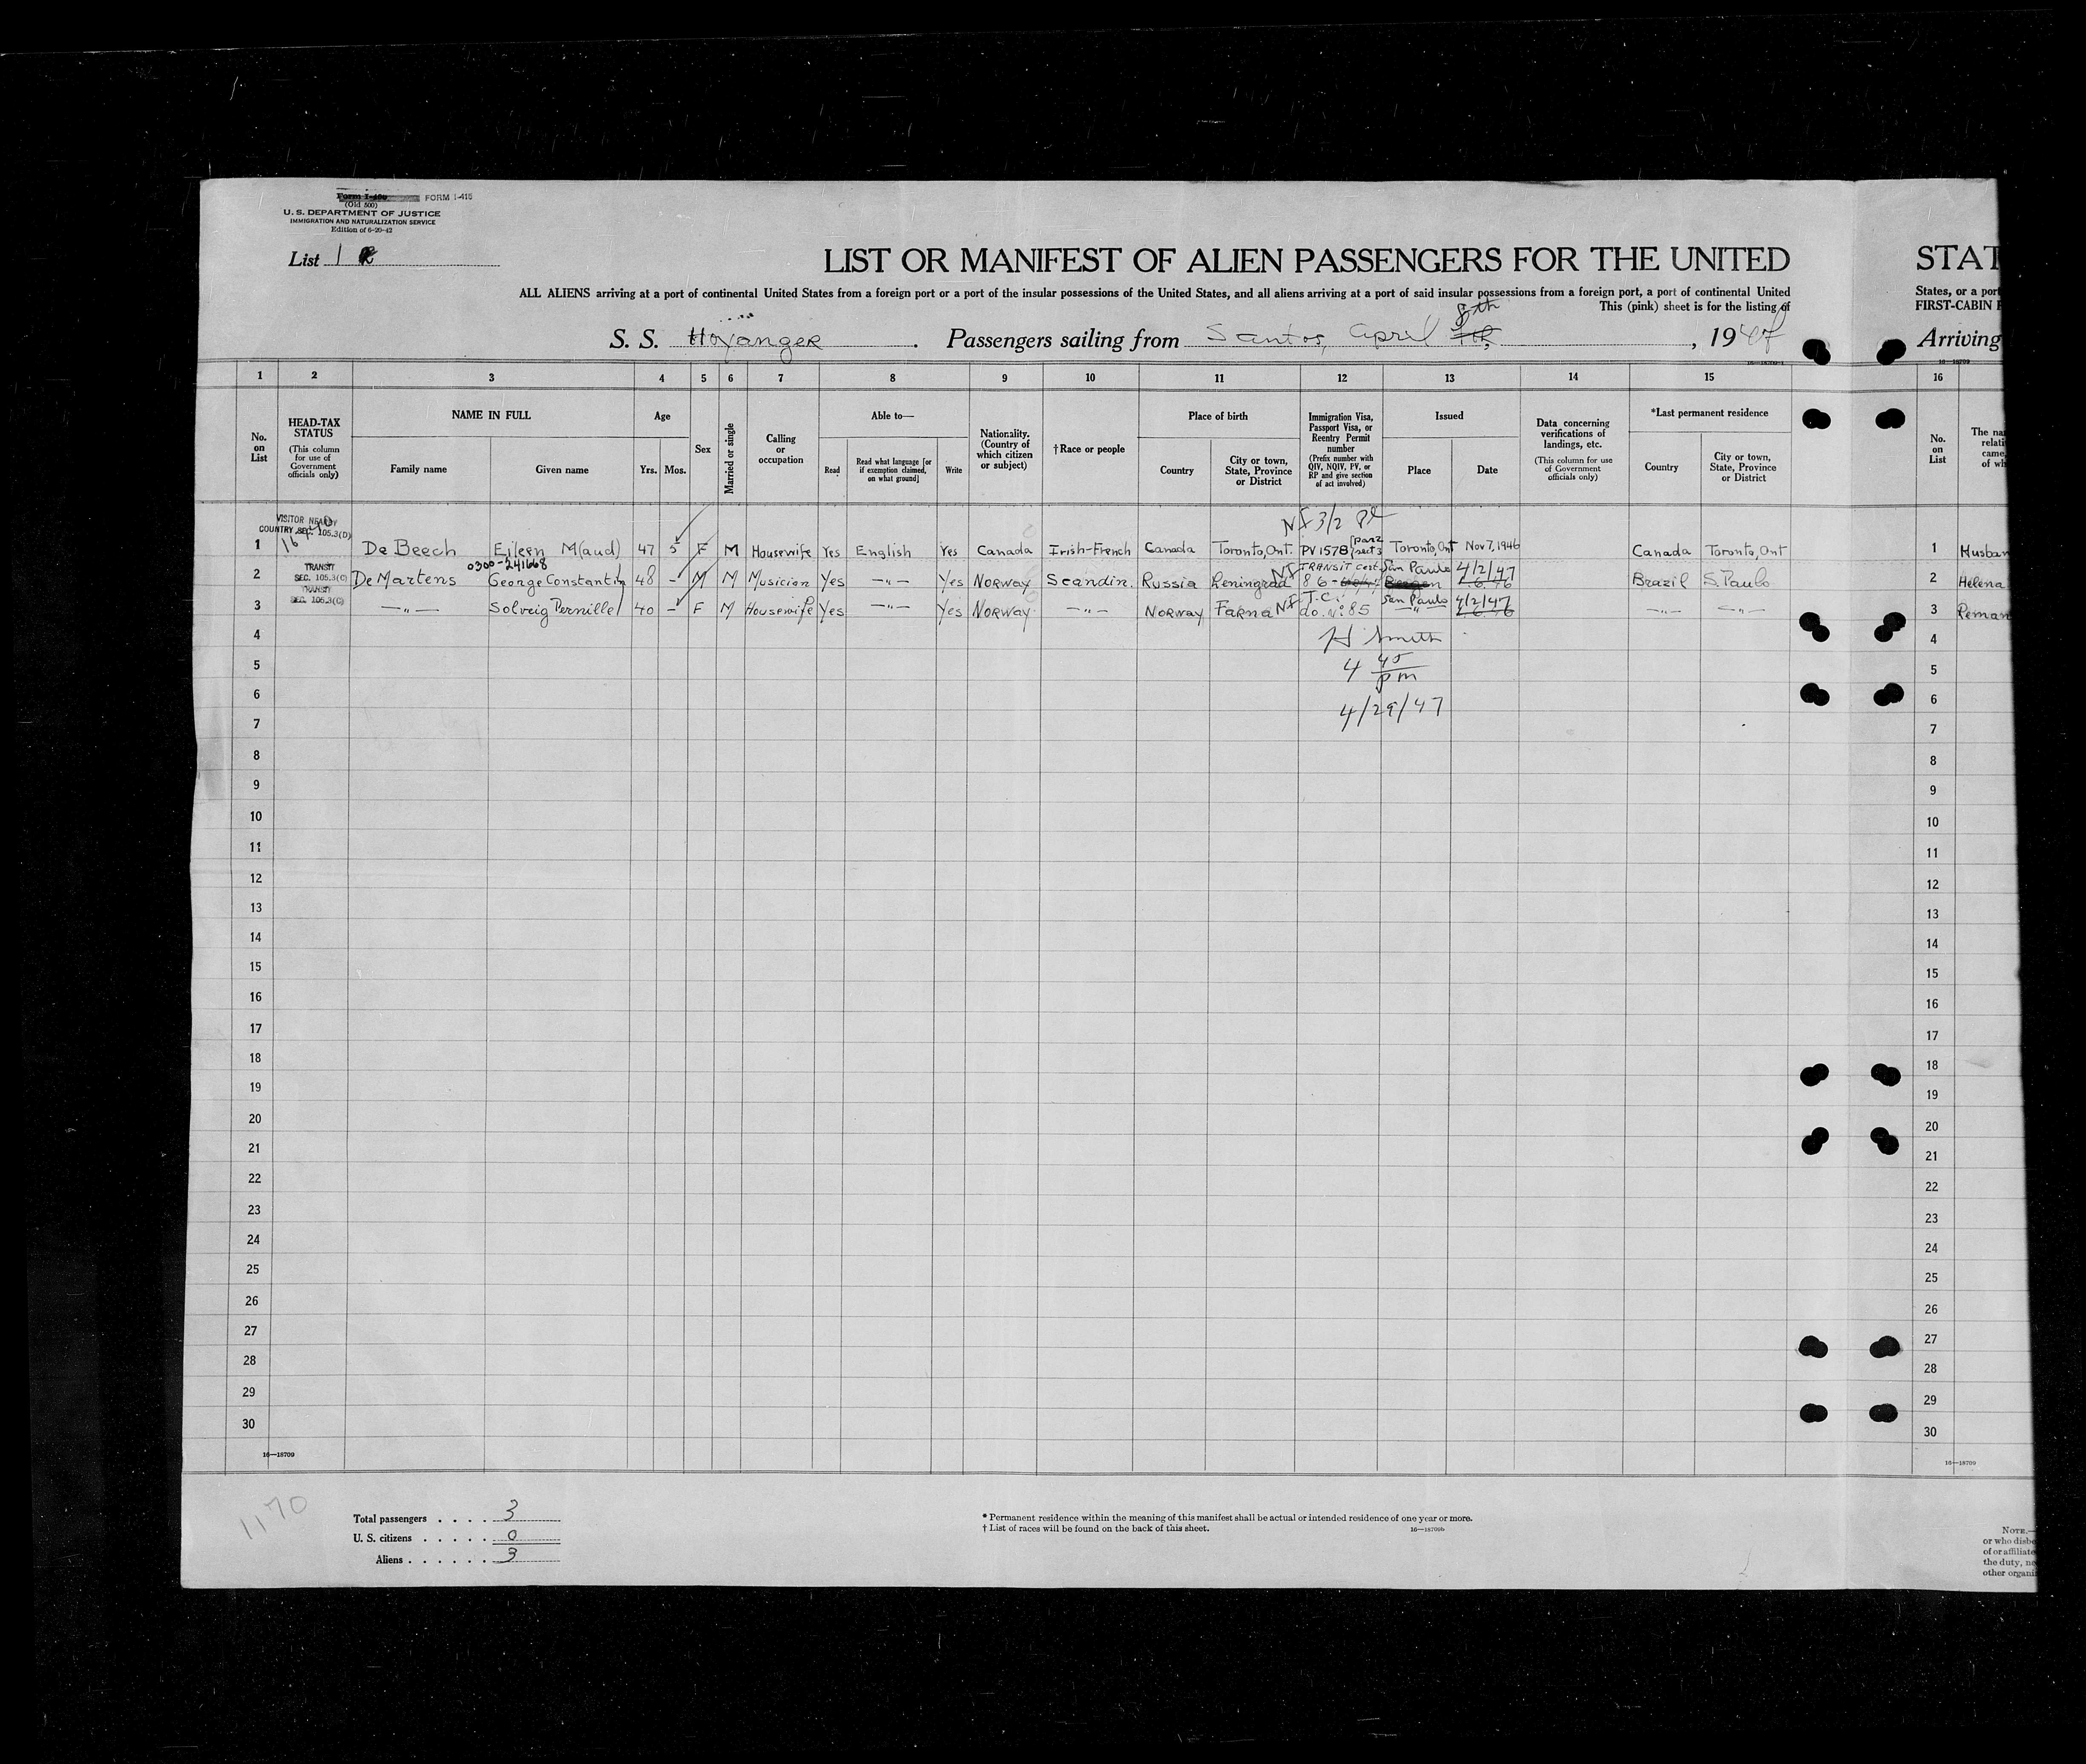 Form I-415
(Old 500)
U. S. DEPARTMENT OF JUSTICE
IMMIGRATION AND NATURALIZATION SERVICE
Edition of 6-20-42
List 1
LIST OR MANIFEST OF ALIEN PASSENGERS FOR THE UNITED
STAT
ALL ALIENS arriving at a port of continental United States from a foreign port or a port of the insular possessions of the United States, and all aliens arriving at a port of said insular possessions from a foreign port, a port of continental United
States, or a port
This (pink) sheet is for the listing of
FIRST-CABIN
S. S. Hoyanger. Passengers sailing from Santos, April 8th, 1947
Arriving
1 2 3 4 5 6 7 8 9 10 11 12 13 14 15 16
No. on List
HEAD-TAX STATUS (This column for use of Government officials only)
NAME IN FULL
Family name Given name
Age
Yrs. Mos.
Sex
Married or single
Calling or occupation
Able to—
Read Read what language [or if exemption claimed, on what ground] Write
Nationality. (Country of which citizen or subject)
†Race or people
Place of birth
Country City or town, State, Province or District
Immigration Visa, Passport Visa, or Reentry Permit number (Prefix number with QIV, NQIV, PV, or RP and give section of act involved)
Issued
Place Date
Data concerning verifications of landings, etc. (This column for use of Government officials only)
*Last permanent residence
Country City or town, State, Province or District
No. on List
The na relati came, of wh
VISITOR NEARBY
COUNTRY SEC. 105.3(D)
3/2
1 De Beech Eileen M(aud) 47 5 F M Housewife Yes English Yes Canada Irish-French Canada Toronto, Ont. PV 1578 Toronto, Ont Nov 7, 1946 Canada Toronto, Ont 1 Husban
0300-241668
TRANSIT SEC. 105.3(C)
2 De Martens George Constantin 48 - M M Musician Yes —"— Yes Norway Scandin. Russia Leningrad TRANSIT Cert. 86 San Paulo 4/2/47 Brazil S. Paulo 2 Helena
TRANSIT SEC. 105.3(C)
3 —"— Solveig Pernille 40 - F M Housewife Yes —"— Yes Norway —"— Norway T.C. do. No 85 San Paulo 4/2/47 —"— —"— 3
4 H Smith 4
5 4 45 pm 5
6 4/29/47 6
7 7
8 8
9 9
10 10
11 11
12 12
13 13
14 14
15 15
16 16
17 17
18 18
19 19
20 20
21 21
22 22
23 23
24 24
25 25
26 26
27 27
28 28
29 29
30 30
16—18709
16—18709
1170
Total passengers . . . . 3
U. S. citizens . . . . . 0
Aliens . . . . . . 3
* Permanent residence within the meaning of this manifest shall be actual or intended residence of one year or more.
† List of races will be found on the back of this sheet.
16—18709b
NOTE.—
or who disbe
of or affiliate
the duty, ne
other organi